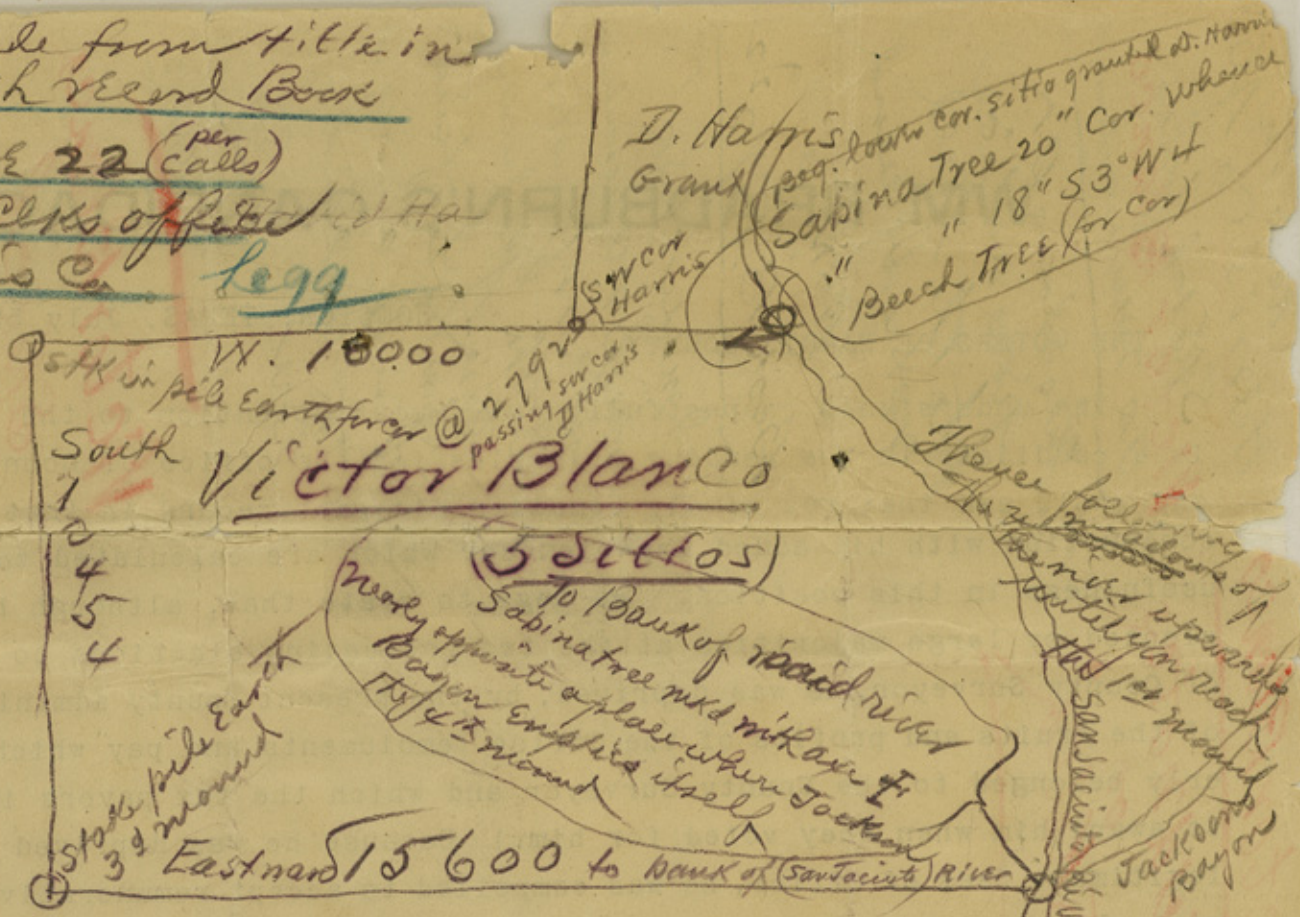 de from title in
h record Book
E 22 (per calls)
Clks office
is Co
Legg
D. Harris
Grant
Beg. lower cor. sitio granted D. Harris
Sabina Tree 20" Cor. whence
" " 18" S 3° W 4
Beech Tree (for Cor)
SW Cor
Harris
W. 18000
stk in pile Earth for cor
@ 2792
passing sw cor
D Harris
South
1
0
4
5
4
Victor Blanco
(5 Sitios)
To Bank of said river
Sabina tree mkd with axe I
nearly opposite a place where Jackson
Bayou empties itself
The 4th mound
Thence following
the meadows of
the river upwards
until you reach
the 1st mound
Stake pile Earth
3d mound
Eastward 15600 to bank of (San Jacinto) River
San Jacinto Riv
Jacksons
Bayou